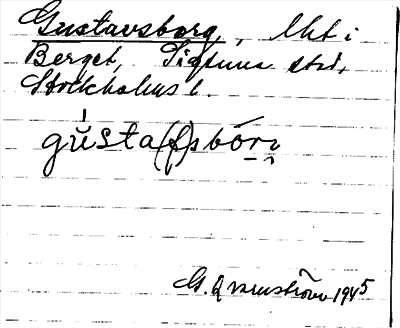 Gustavsborg, lht i
Berget, Sigtuna stad,
Stockholms l.
gùsta(f)sbórj
G. Qvarnström 1945